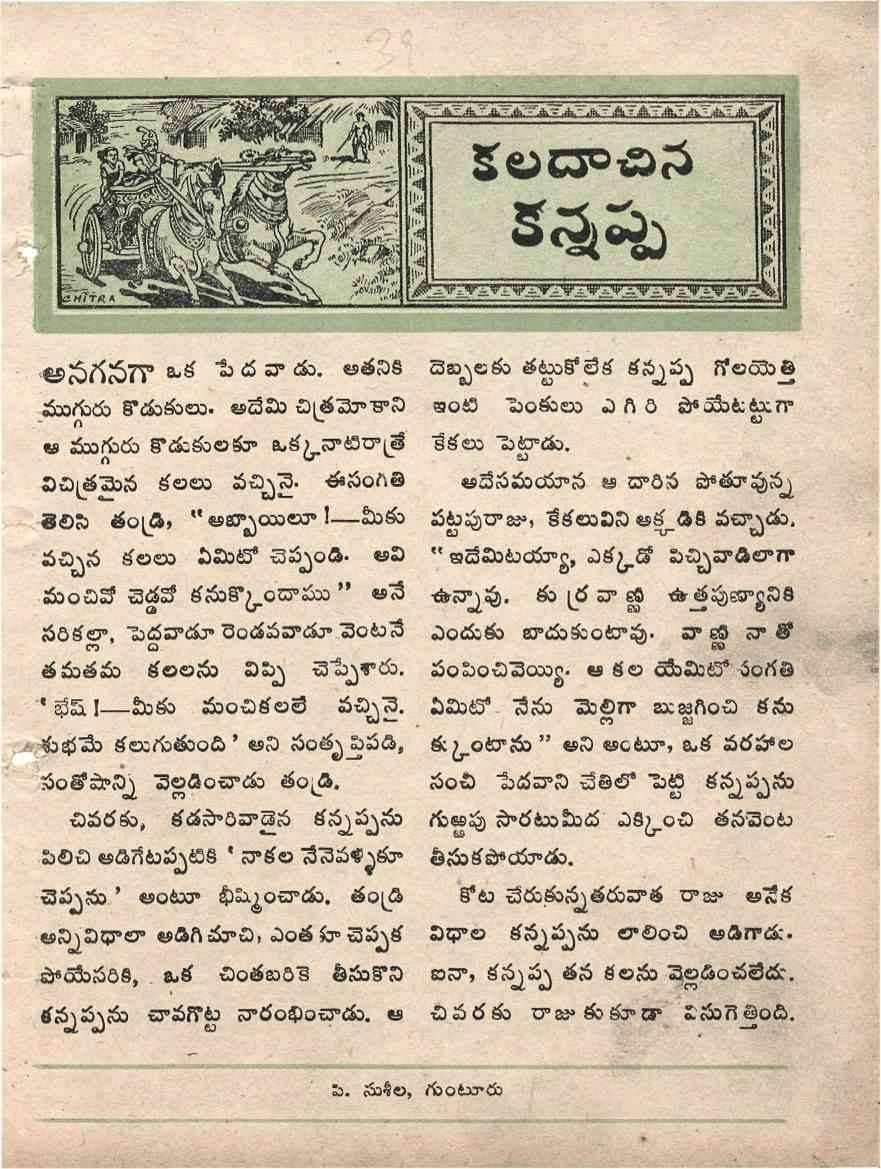 39
CHITRA
కలదాచిన
కన్నప్ప
అనగనగా ఒక పేదవాడు. అతనికి
ముగ్గురు కొడుకులు. అదేమి చిత్రమోకాని
ఆ ముగ్గురు కొడుకులకూ ఒక్కనాటిరాత్రే
విచిత్రమైన కలలు వచ్చినై. ఈసంగతి
తెలిసి తండ్రి, “అబ్బాయిలూ!—మీకు
వచ్చిన కలలు ఏమిటో చెప్పండి. అవి
మంచివో చెడ్డవో కనుక్కొందాము” అనే
సరికల్లా, పెద్దవాడూ రెండవవాడూ వెంటనే
తమతమ కలలను విప్పి చెప్పేశారు.
‘భేష్!—మీకు మంచికలలే వచ్చినై.
శుభమే కలుగుతుంది’ అని సంతృప్తిపడి,
సంతోషాన్ని వెల్లడించాడు తండ్రి.
చివరకు, కడసారివాడైన కన్నప్పను
పిలిచి అడిగేటప్పటికి ‘నాకల నేనెవళ్ళికూ
చెప్పను’ అంటూ భీష్మించాడు. తండ్రి
అన్నివిధాలా అడిగిచూచి, ఎంతకూ చెప్పక
పోయేసరికి, ఒక చింతబరికె తీసుకొని
కన్నప్పను చావగొట్ట నారంభించాడు. ఆ
దెబ్బలకు తట్టుకోలేక కన్నప్ప గోలయెత్తి
ఇంటి పెంకులు ఎగిరి పోయేటట్టుగా
కేకలు పెట్టాడు.
అదేసమయాన ఆ దారిన పోతూవున్న
పట్టపురాజు, కేకలువిని అక్కడికి వచ్చాడు.
“ఇదేమిటయ్యా, ఎక్కడో పిచ్చివాడిలాగా
ఉన్నావు. కుర్రవాణ్ణి ఉత్తపుణ్యానికి
ఎందుకు బాదుకుంటావు. వాణ్ణి నాతో
పంపించివెయ్యి. ఆ కల యేమిటో సంగతి
ఏమిటో నేను మెల్లిగా బుజ్జగించి కను
క్కుంటాను” అని అంటూ, ఒక వరహాల
సంచీ పేదవాని చేతిలో పెట్టి కన్నప్పను
గుఱ్ఱపు సారటుమీద ఎక్కించి తనవెంట
తీసుకపోయాడు.
కోట చేరుకున్నతరువాత రాజు అనేక
విధాల కన్నప్పను లాలించి అడిగాడు.
ఐనా, కన్నప్ప తన కలను వెల్లడించలేదు.
చివరకు రాజుకుకూడా విసుగెత్తింది.
పి. సుశీల, గుంటూరు